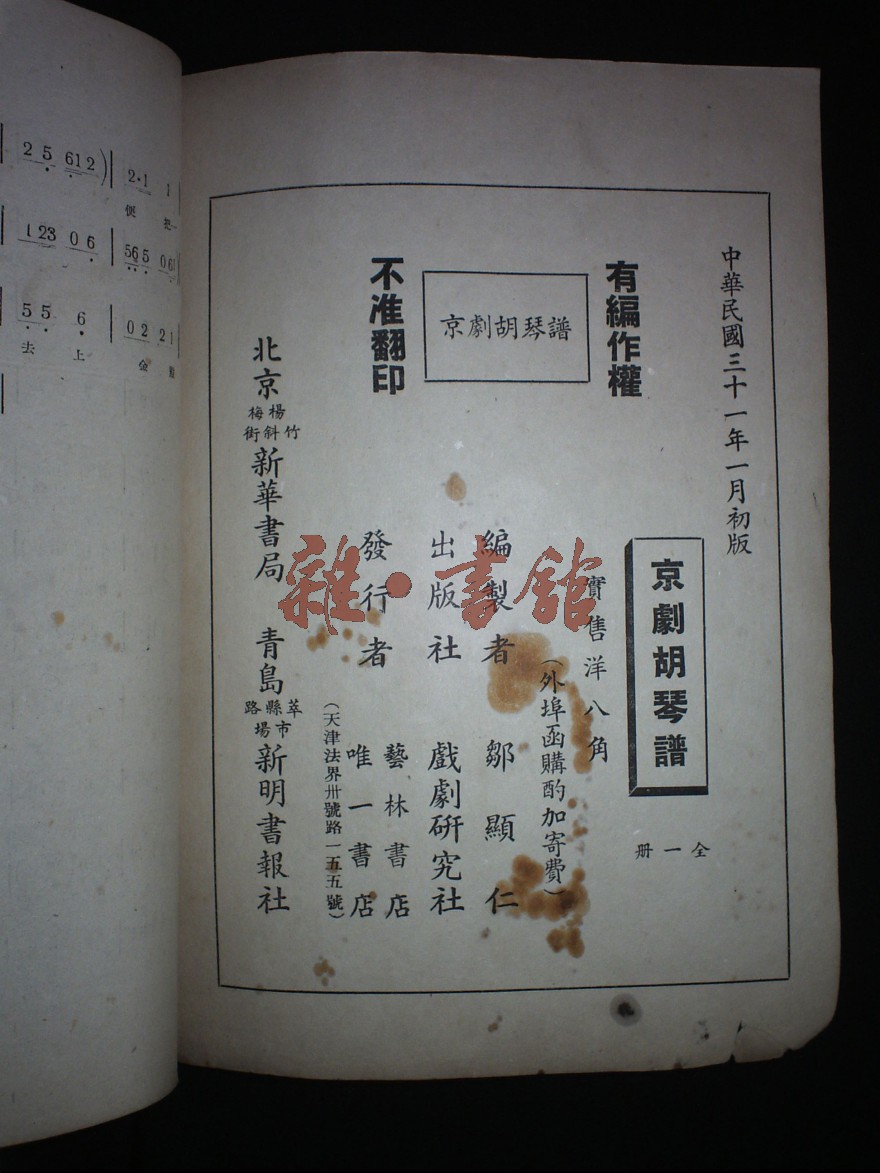 2 5 612)
2·1 1
便 把
123 06
565 061
55 6
02 21
去 上
金
中華民國三十一年一月初版
京劇胡琴譜
全一冊
有編作權
京劇胡琴譜
不准翻印
實售洋八角
(外埠函購酌加寄費)
編製者 鄒顯仁
出版社 戲劇研究社
發行者
藝林書店
唯一書店
(天津法界卅號路一五五號)
北京 楊梅竹斜街 新華書局
青島 萃縣路市場 新明書報社
雜·書館